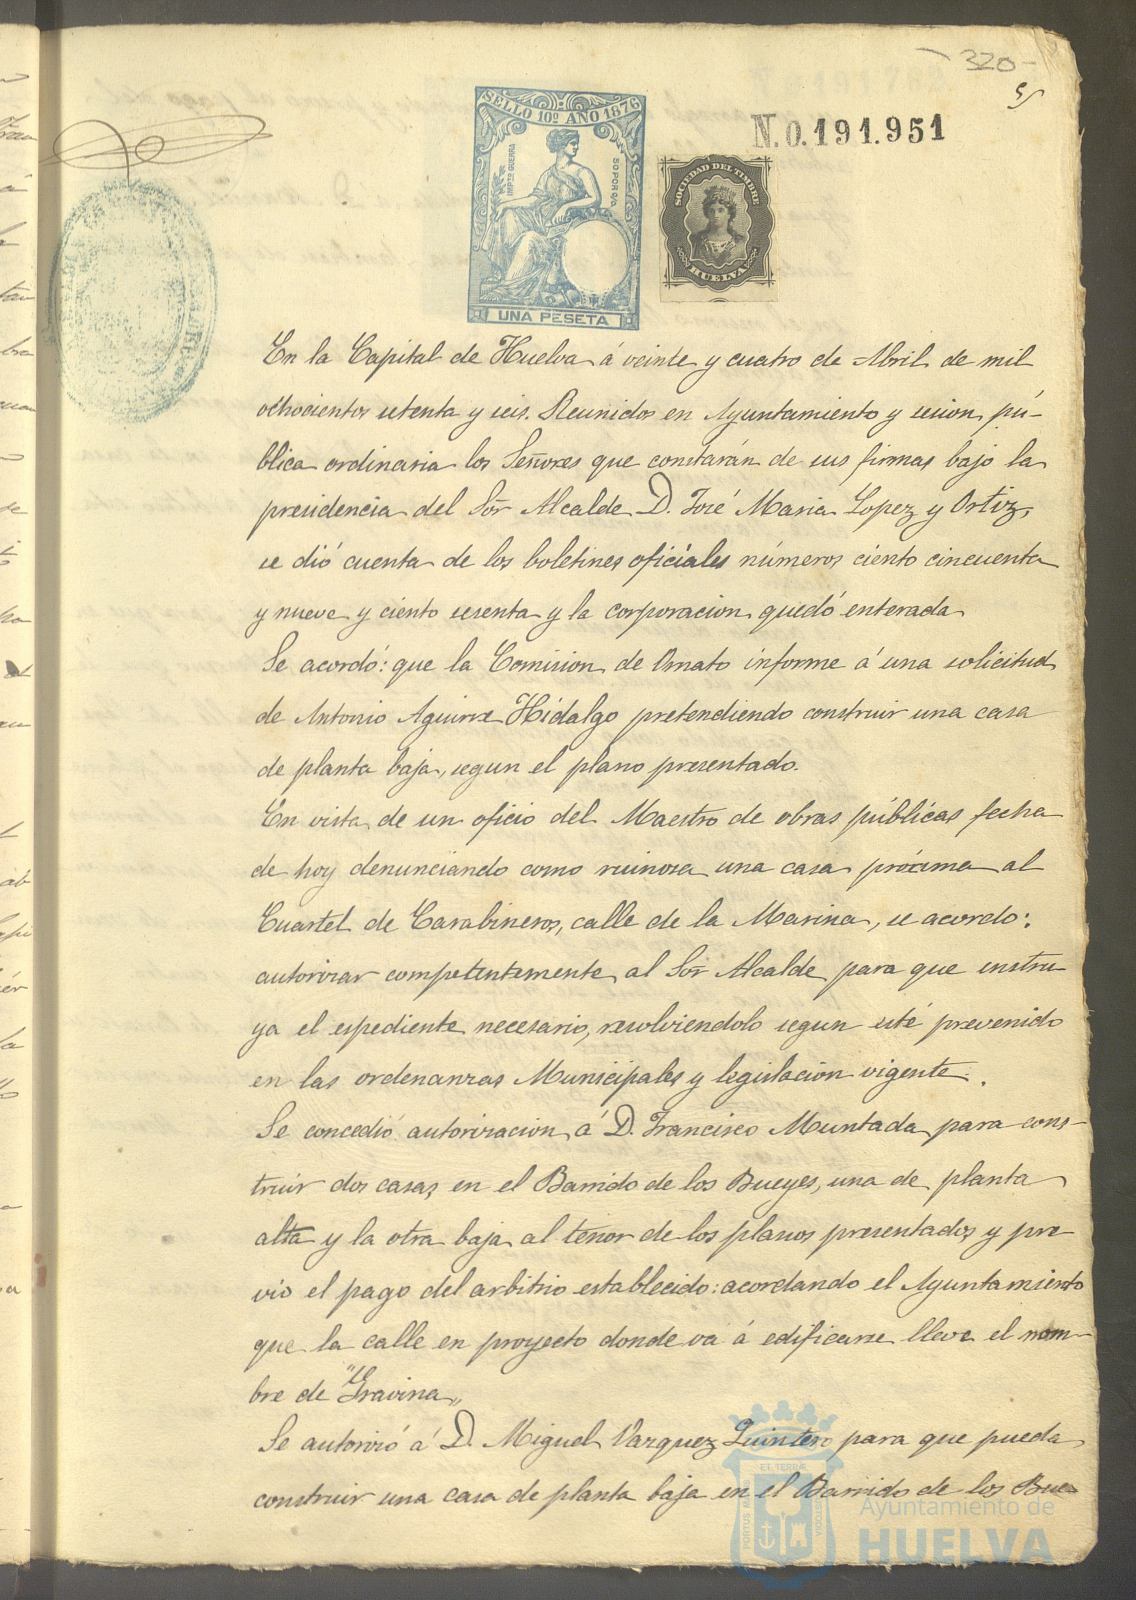 320-
N.0.191.951
SELLO 10º AÑO 1876
IMPTO GUERRA
50 POR 0/0
UNA PESETA
SOCIEDAD DEL TIMBRE
HUELVA
En la Capital de Huelva á veinte y cuatro de Abril de mil
ochocientos setenta y seis. Reunidos en Ayuntamiento y sesion pú-
blica ordinaria los Señores que constarán de sus firmas bajo la
presidencia del Sōr Alcalde D. José Maria Lopez y Ortiz,
se dió cuenta de los boletines oficiales números ciento cincuenta
y nueve y ciento sesenta y la corporacion quedó enterada
Se acordó: que la Comision de Ornato informe á una solicitud
de Antonio Aguirre Hidalgo pretendiendo construir una casa
de planta baja, segun el plano presentado.
En vista de un oficio del Maestro de obras públicas fecha
de hoy denunciando como ruinosa una casa próxima al
Cuartel de Carabineros, calle de la Marina, se acordo:
autorizar competentemente al Sōr Alcalde para que instru-
ya el espediente necesario, resolviendolo segun esté prevenido
en las ordenanzas Municipales y legislacion vigente.
Se concedió autorizacion á D. Francisco Muntada para cons-
truir dos casas en el Barrido de los Bueyes, una de planta
alta y la otra baja al tenor de los planos presentados y pre
vio el pago del arbitrio establecido: acordando el Ayuntamiento
que la calle en proyecto donde vá á edificarse lleve el nom-
bre de "Gravina"
Se autorizó á D. Miguel Vazquez Quintero para que pueda
construir una casa de planta baja en el Barrido de los Bue
PORTUS MARIS
ET TERRAE
CUSTODIA
Ayuntamiento de
HUELVA